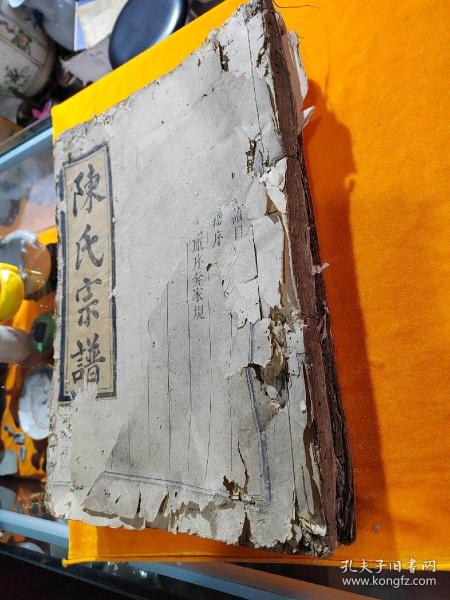 陳氏宗譜
譜目
總序
原序并家規
孔夫子旧书网
www.kongfz.com